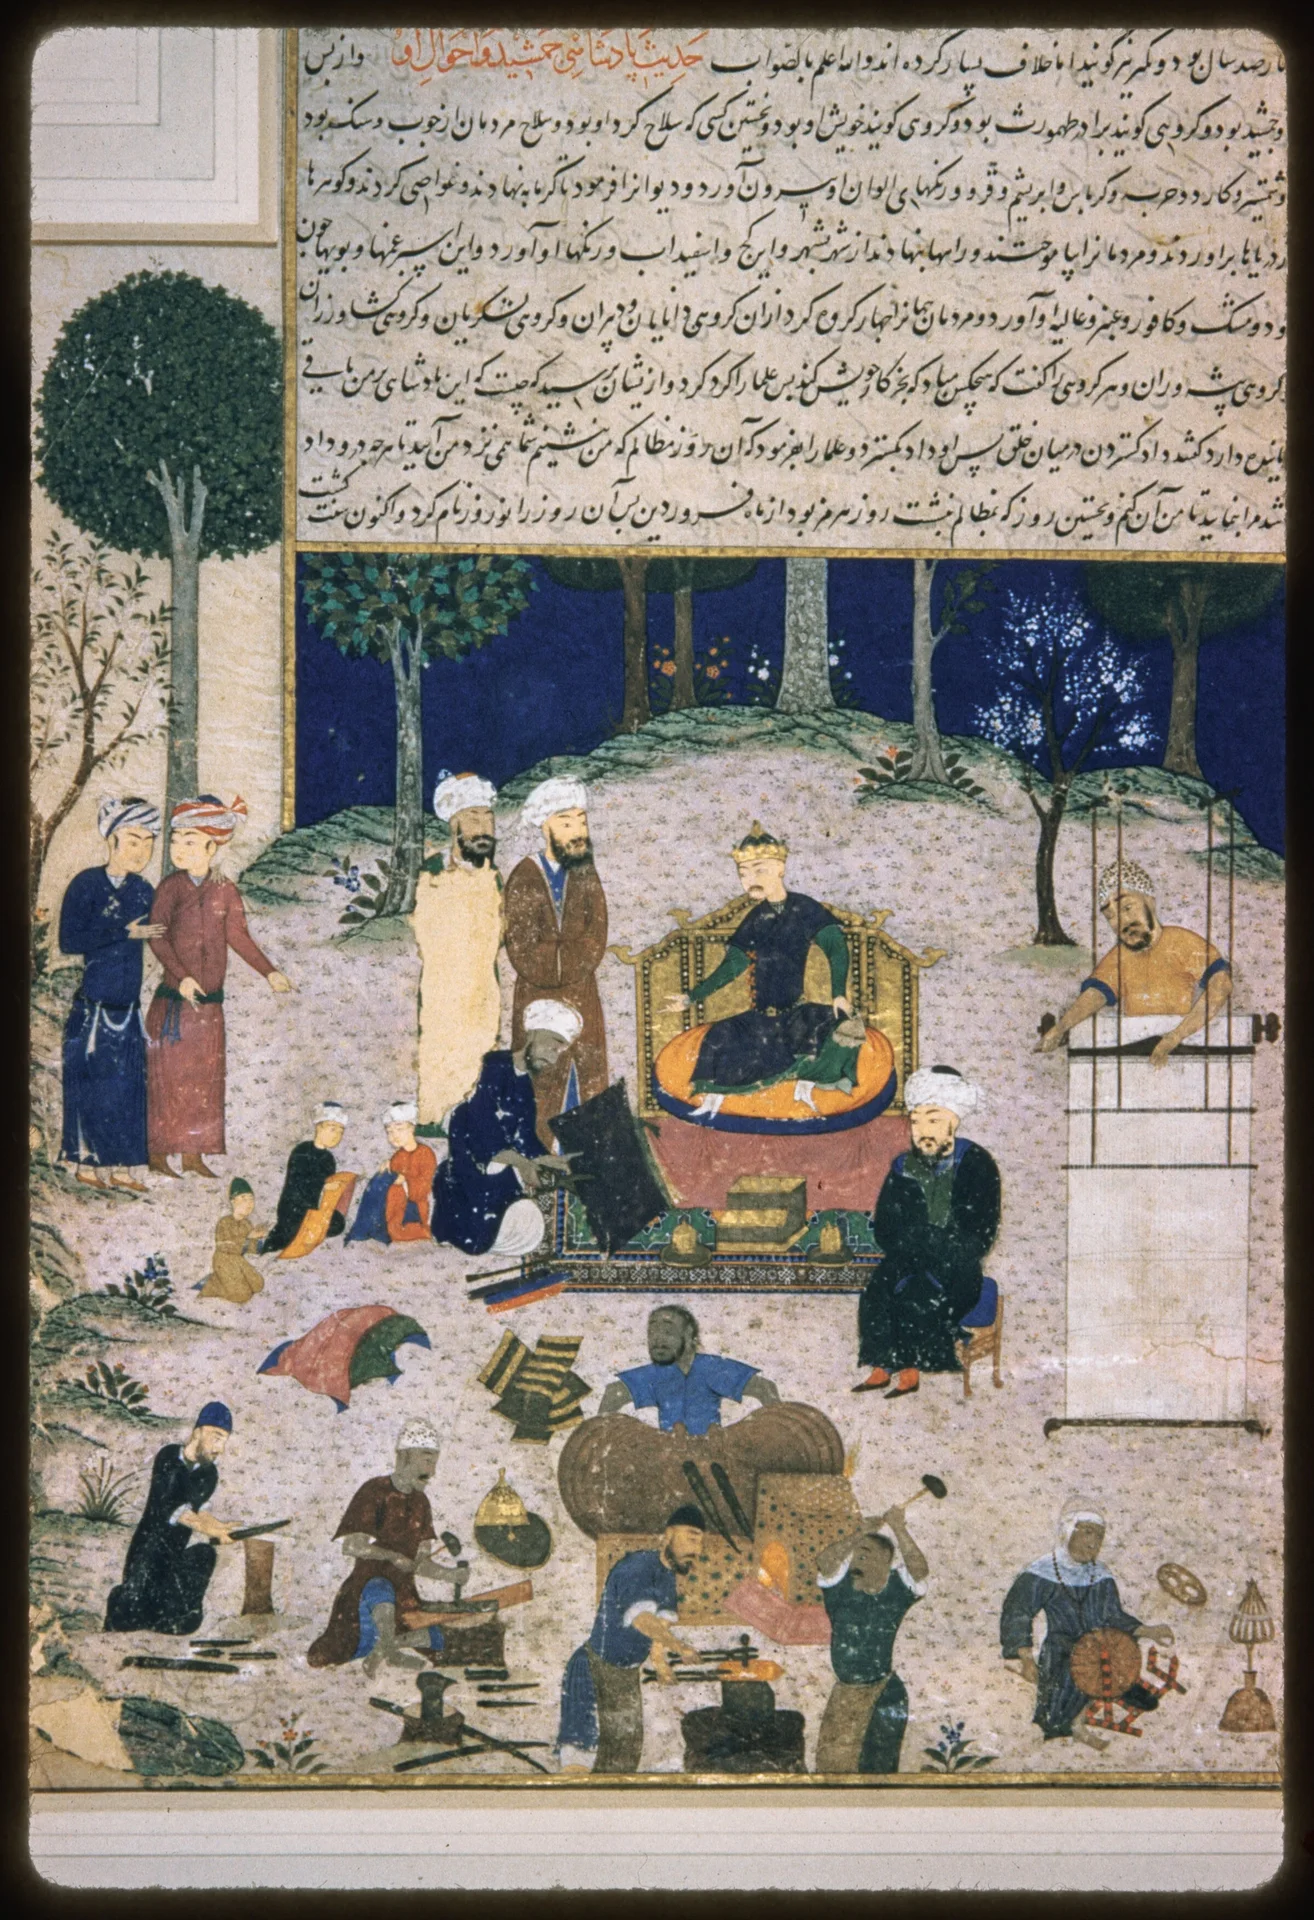 صد سال بود و دیگر نیز گویند اما خلاف بسیار کرده اند والله اعلم بالصواب حدیث پادشاهی جمشید و احوال او و از پس
جمشید بود و گروهی گویند برادر طهمورث بود و گروهی گویند خویش او بود و نخستین کسی که سلاح کرد او بود و سلاح مردمان از چوب و سنک بود
و شمشیر و کارد و حربه و کرباس و ابریشم و قز و رنکهای الوان او بیرون آورد و دیوانرا فرمود تا کرمابه نهادند و غواصی کردند و کوهرها
از دریاها براوردند و مردمانرا بیاموختند و راهها نهادند از شهر بشهر و این کج و اسفیداب و رنکها او آورد و این اسپرغمها و بویها چون
و مشک و کافور و عنبر و غالیه او آورد و مردمان جهانرا چهار کروه کرد از ان کروهی دانایان و دبیران و کروهی لشکریان و کروهی کشاورزان
کروهی پیشه وران و هر کروهی را گفت که هیچکس مباد که بجز کار خویش کند پس علما را کرد کرد و از یشان پرسید که چیست که این پادشاهی بر من باقی
پاینده دارد گفتند داد کستردن در میان خلق پس او داد بکسترد و علما را بفرمود که آن روز مظالم که من بنشینم شما همی نزد من آیید تا هرچه درو داد
باشد مرا بنمایید تا من آن کنم و نخستین روز که بمظالم بنشست روز هرمز بود از ماه فروردین پس آن روز را نوروز نام کرد و اکنون سنت کشت